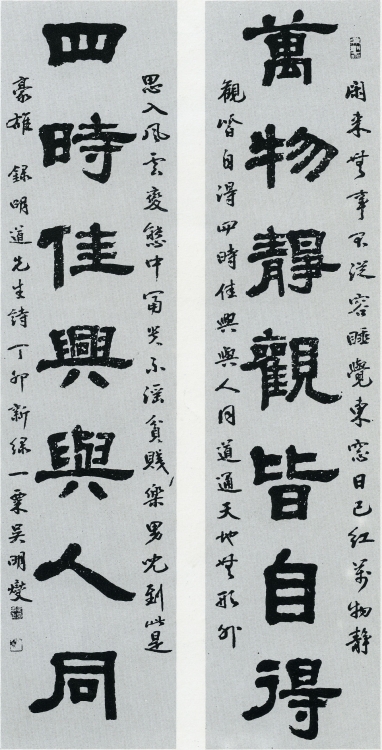 萬物靜觀皆自得
閑来無事不從容睡覺東窓日已红萬物静
觀皆自得四時佳興與人同道通天地無形外
四時佳興與人同
思入風雲變態中冨貴不淫貧賤樂男児到此是
豪雄 録明道先生詩 丁卯新緑 一粟吴明